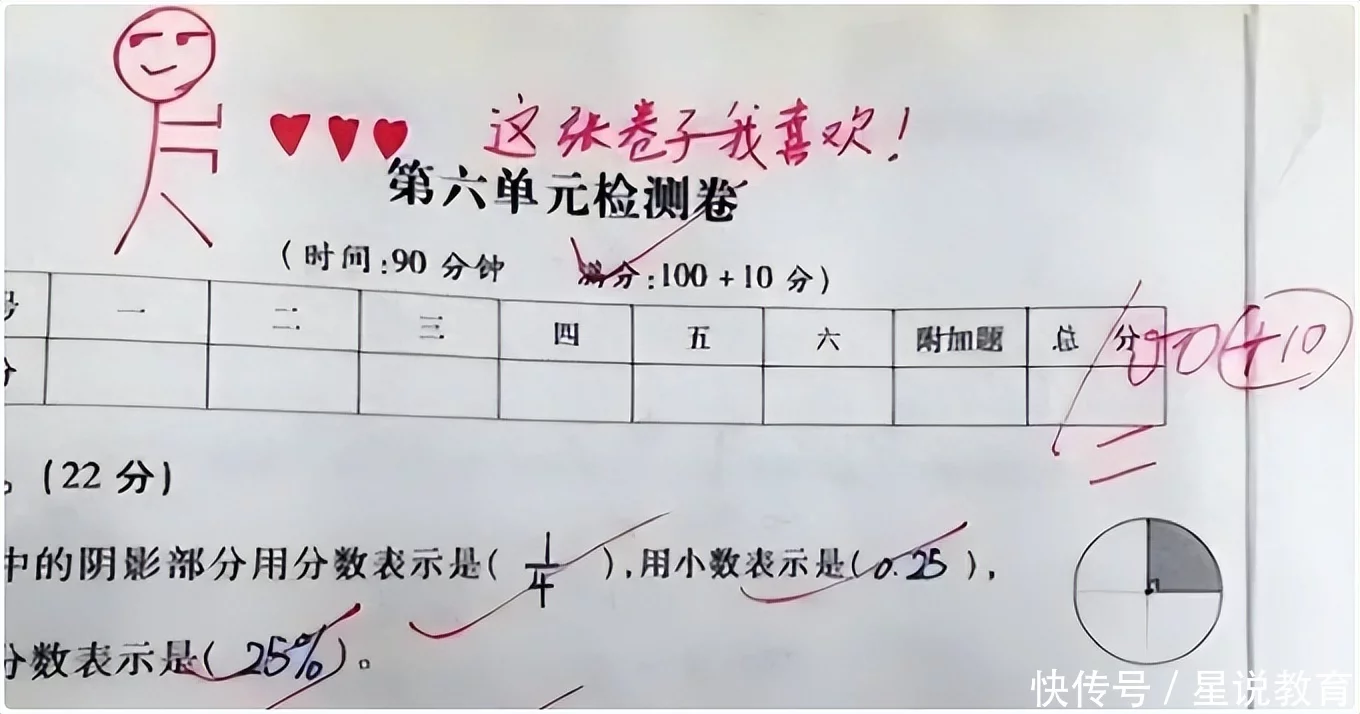 这张卷子我喜欢!
第六单元检测卷
(时间:90分钟 满分:100+10分)
号 一 二 三 四 五 六 附加题 总 分
分
100+10
。(22分)
中的阴影部分用分数表示是( 1/4 ),用小数表示是(0.25),
分数表示是(25%)。
快传号 / 星说教育